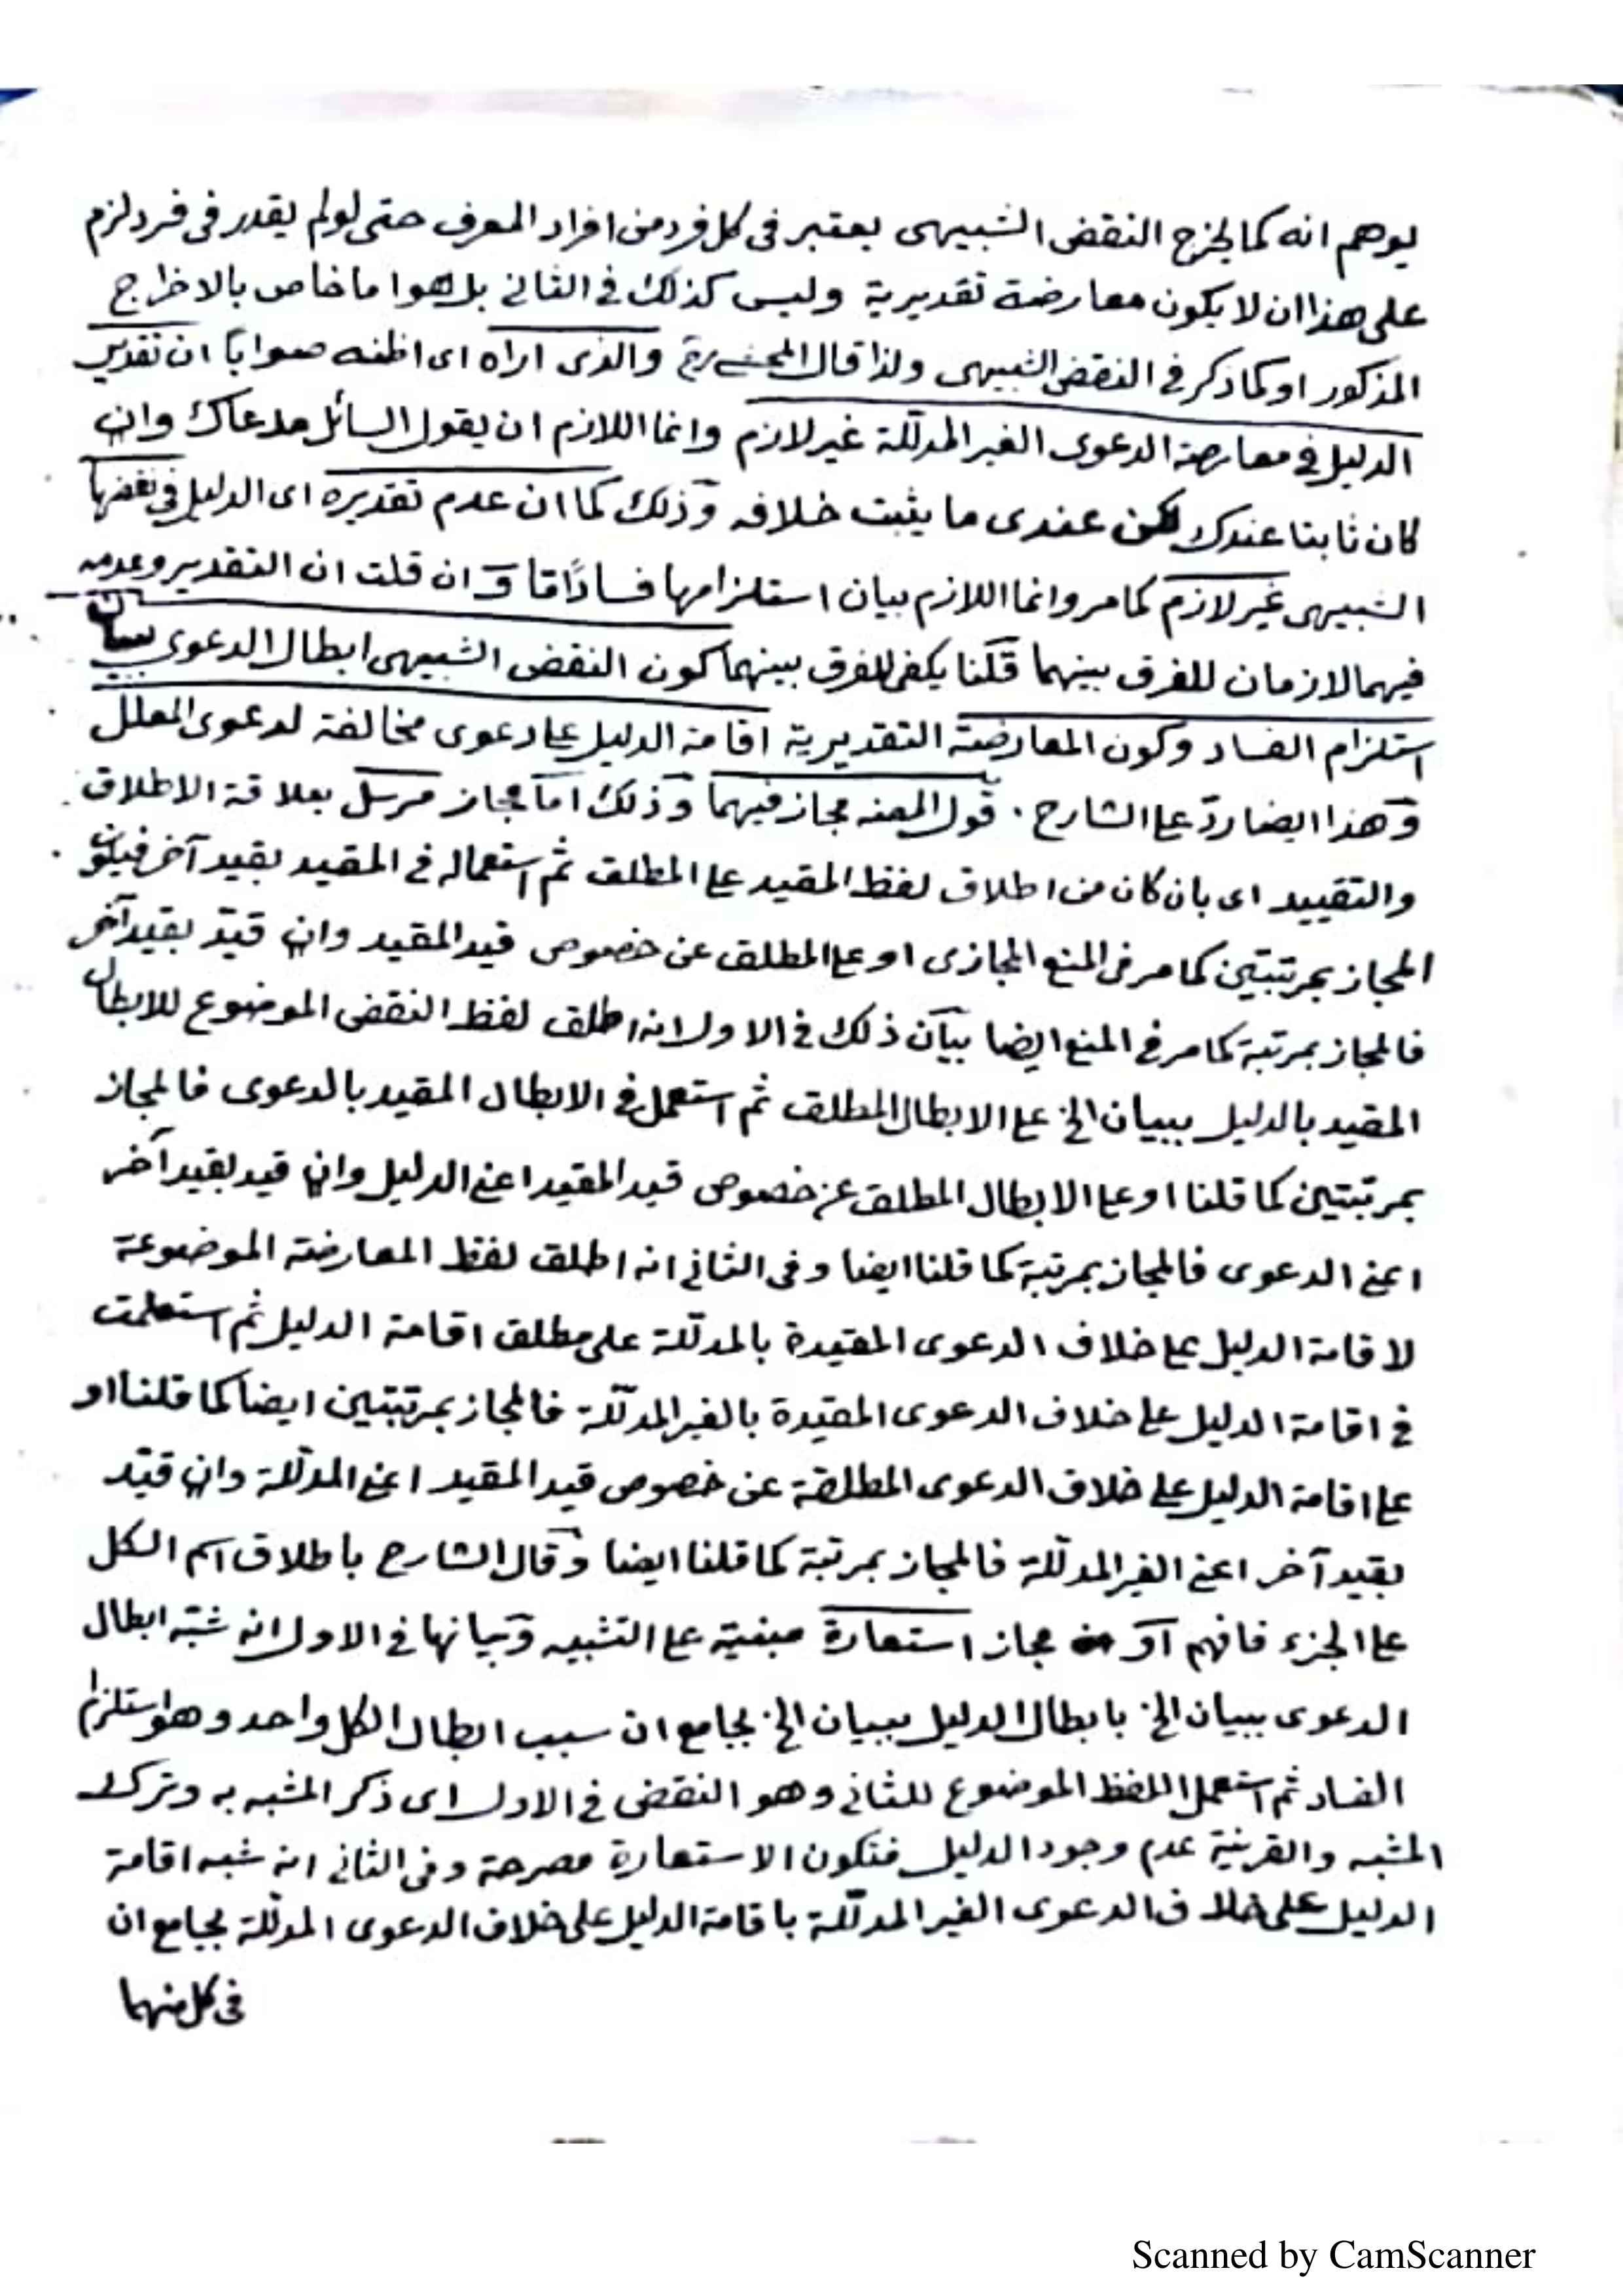 يوهم انه كما لخرج النقض الشبيهى يعتبر فى كل فرد من افراد المعرف حتى لو لم يقدر فى فرد لزم
على هذا ان لا يكون معارضة تقديرية وليس كذلك فى الثانى بل هو اما خاص بالاخراج
المذكور او كما ذكر فى النقض الشبيهى ولذا قال المحشى رح والذى اراه اى اظنه صوابا ان تقدير
الدليل فى معارضة الدعوى الغير المدللة غير لازم وانما اللازم ان يقول السائل مدعاك وان
كان ثابتا عندك لكن عندى ما يثبت خلافه وذلك كما ان عدم تقديره اى الدليل فى نقضها
الشبيهى غير لازم كما مر وانما اللازم بيان استلزامها فسادًا مّا وان قلت ان التقدير وعدمه
فيهما لازمان للفرق بينهما قلنا يكفى للفرق بينهما كون النقض الشبيهى ابطال الدعوى ببيان
استلزام الفساد وكون المعارضة التقديرية اقامة الدليل على دعوى مخالفة لدعوى المعلل
وهذا ايضا ردّ على الشارح . قول المصنه مجاز فيهما وذلك اما مجاز مرسل بعلاقة الاطلاق
والتقييد اى بان كان من اطلاق لفظ المقيد على المطلق ثم استعماله فى المقيد بقيد آخر فيكون
المجاز بمرتبتين كما مر فى المنع المجازى او على المطلق عن خصوص قيد المقيد وان قيّد بقيد آخر
فالمجاز بمرتبة كما مر فى المنع ايضا بيان ذلك فى الاول انه اطلق لفظ النقض الموضوع للابطال
المقيد بالدليل ببيان الخ على الابطال المطلق ثم استعمل فى الابطال المقيد بالدعوى فالمجاز
بمرتبتين كما قلنا او على الابطال المطلق عن خصوص قيد المقيد اعنى الدليل وان قيد بقيد آخر
اعنى الدعوى فالمجاز بمرتبة كما قلنا ايضا وفى الثانى انه اطلق لفظ المعارضة الموضوعة
لاقامة الدليل على خلاف الدعوى المقيدة بالمدللة على مطلق اقامة الدليل ثم استعملت
فى اقامة الدليل على خلاف الدعوى المقيدة بالغير المدللة فالمجاز بمرتبتين ايضا كما قلنا او
على اقامة الدليل على خلاف الدعوى المطلقة عن خصوص قيد المقيد اعنى المدللة وان قيّد
بقيد آخر اعنى الغير المدللة فالمجاز بمرتبة كما قلنا ايضا وقال الشارح باطلاق اسم الكل
على الجزء فافهم او مجاز استعارة مبنية على التشبيه وبيانها فى الاول انه شبّه ابطال
الدعوى ببيان الخ بابطال الدليل ببيان الخ بجامع ان سبب ابطال الكل واحد وهو استلزام
الفساد ثم استعمل اللفظ الموضوع للثانى وهو النقض فى الاول اى ذكر المشبه به وترك
المشبه والقرينة عدم وجود الدليل فتكون الاستعارة مصرحة وفى الثانى انه شبه اقامة
الدليل على خلاف الدعوى الغير المدللة باقامة الدليل على خلاف الدعوى المدللة بجامع ان
فى كل منهما
Scanned by CamScanner